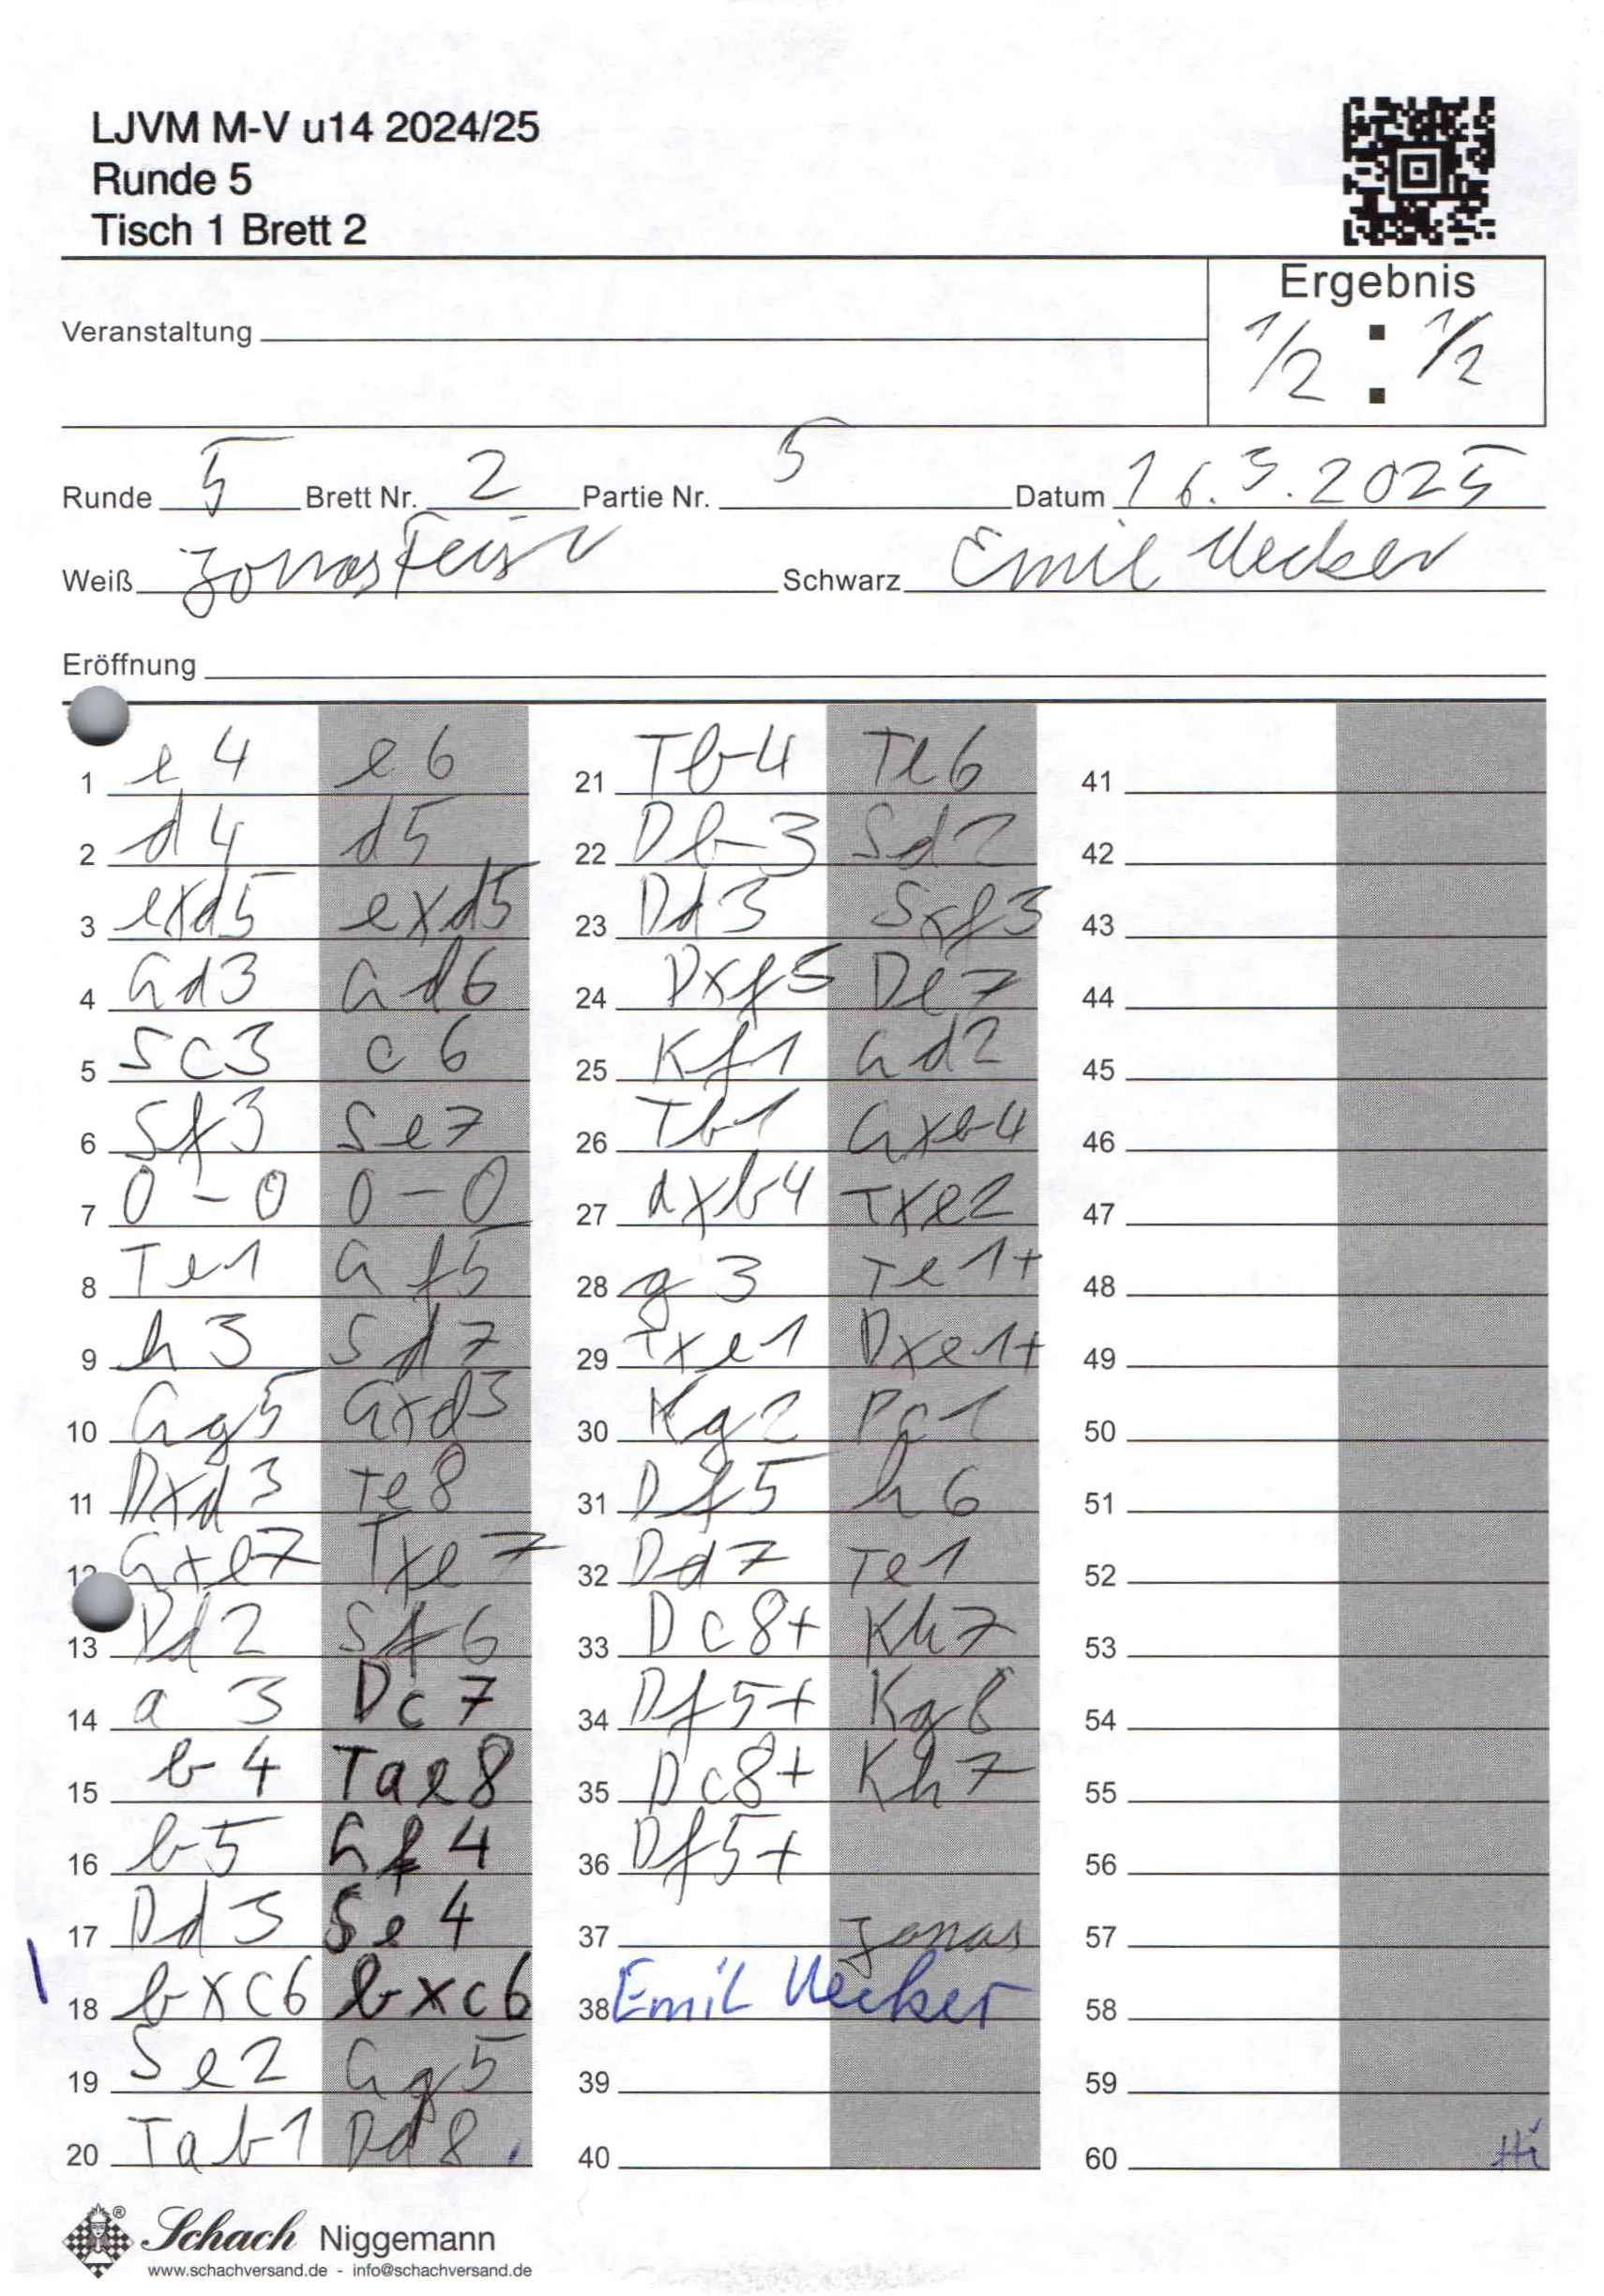 LJVM M-V u14 2024/25
Runde 5
Tisch 1 Brett 2
Ergebnis
1/2 : 1/2
Veranstaltung
Runde 5 Brett Nr. 2 Partie Nr. 5 Datum 16.3.2025
Weiß Jonas Schwarz Emil Uecker
Eröffnung
1 e4 e6
2 d4 d5
3 exd5 exd5
4 Ld3 Ld6
5 Sc3 c6
6 Sf3 Se7
7 0-0 0-0
8 Te1 Lf5
9 h3 Sd7
10 Lg5 Lxd3
11 Dxd3 Te8
12 Lxe7 Txe7
13 Dd2 Sf6
14 a3 Dc7
15 b4 Tae8
16 b5 Lf4
17 Dd3 Se4
18 bxc6 bxc6
19 Se2 Lg5
20 Tab1 Dd8
21 Tb4 Te6
22 Db3 Sd2
23 Dd3 Sxf3
24 Dxf5 De7
25 Kf1 Ld2
26 Tb1 Lxb4
27 axb4 Txe2
28 g3 Te1+
29 Txe1 Dxe1+
30 Kg2
31 Df5 h6
32 Dd7 Te1
33 Dc8+ Kh7
34 Df5+ Kg8
35 Dc8+ Kh7
36 Df5+
37 Jonas
38 Emil Uecker
39
40
41
42
43
44
45
46
47
48
49
50
51
52
53
54
55
56
57
58
59
60
Schach Niggemann
www.schachversand.de - info@schachversand.de